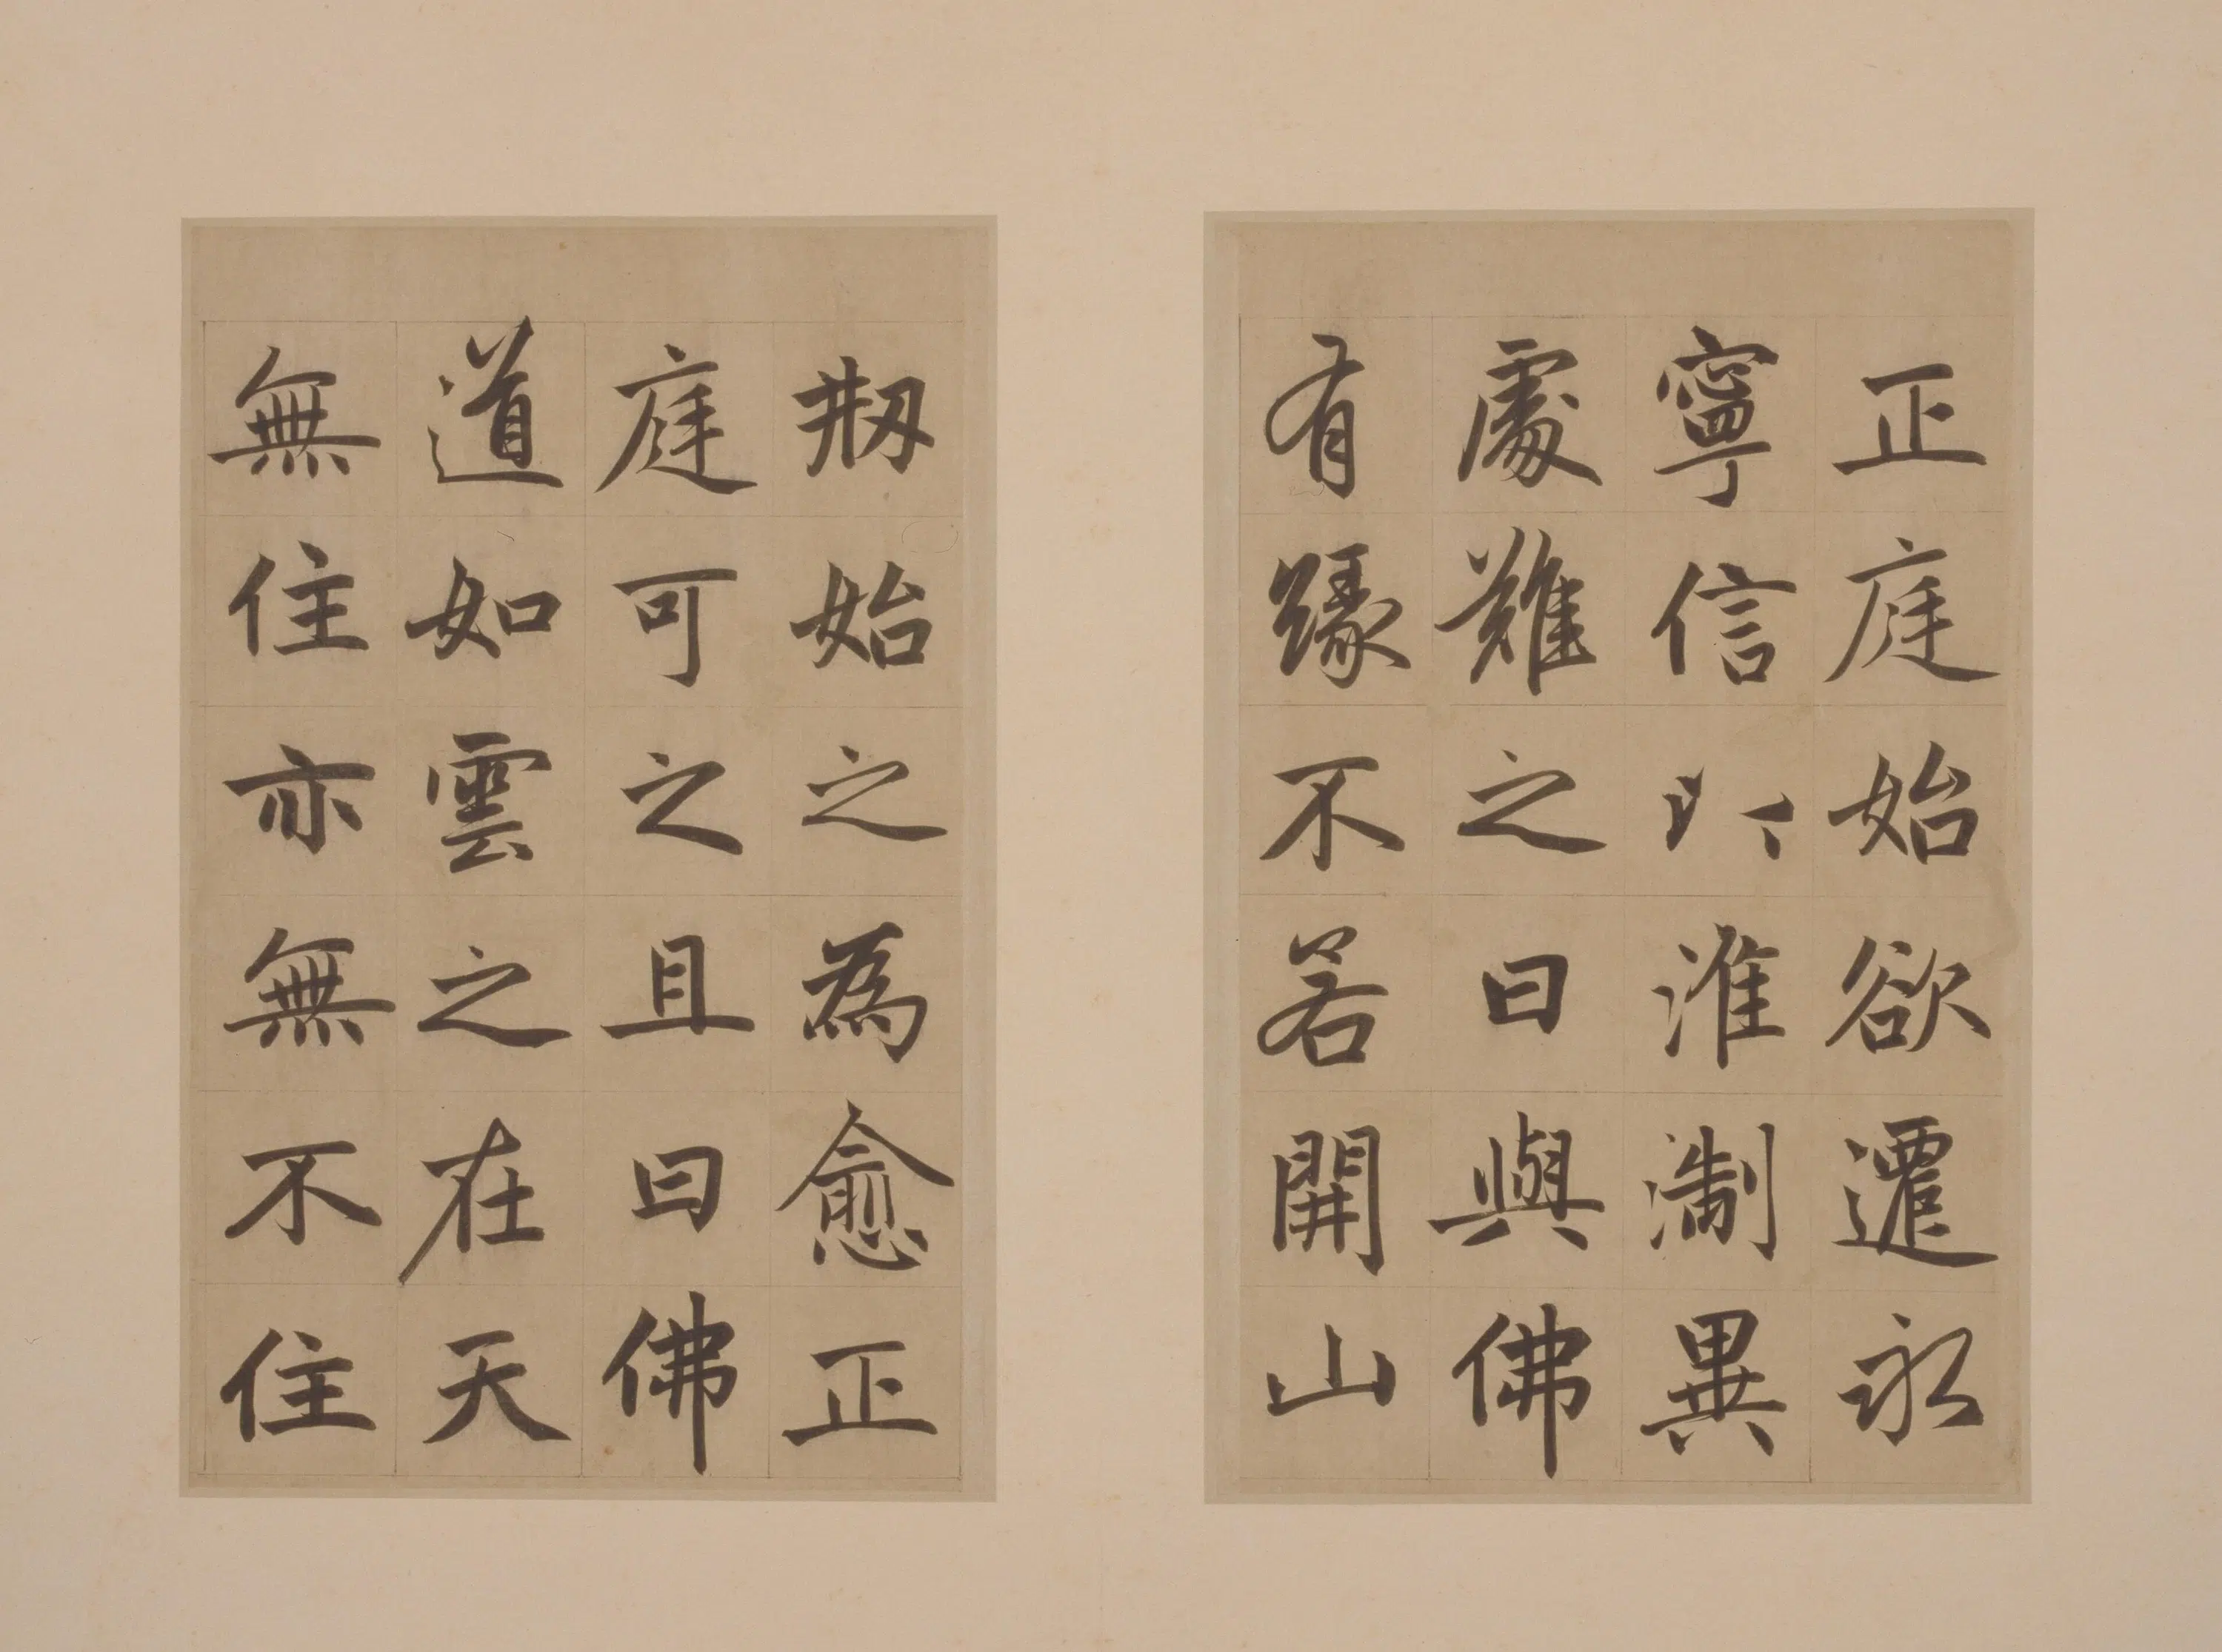 正庭始欲遷永
寧信淮淛異
處難之曰與佛
有緣不若開山
刱始之為愈正
庭可之且曰佛
道如雲之在天
無住亦無不住